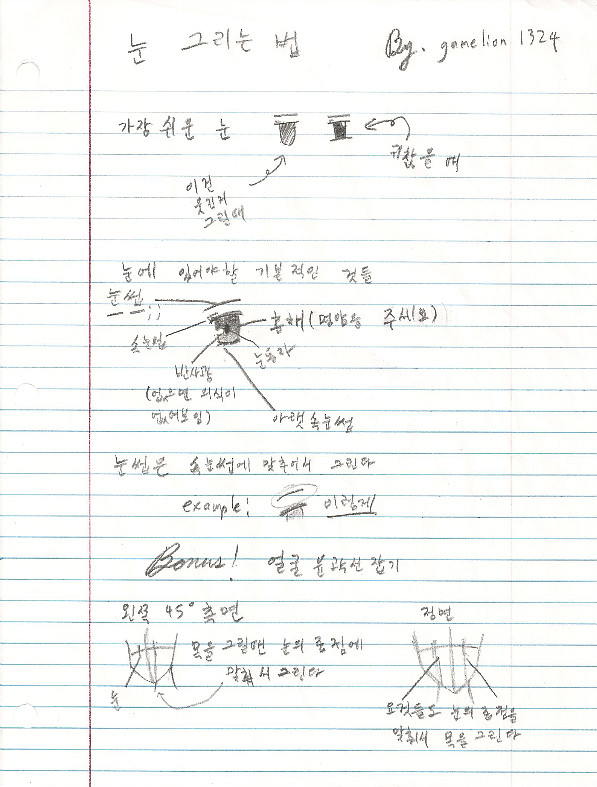 눈 그리는 법 By. gamelion 1324
가장 쉬운 눈
귀찮을 때
이건
웃긴거
그릴때
눈에 있어야할 기본적인 것들
눈썹;;
속눈썹
홍채(명암을 주세요)
눈동자
반사광
(없으면 의식이
없어보임)
아랫속눈썹
눈썹은 속눈썹에 맞추어서 그린다
example: 이렇게
Bonus! 얼굴 윤곽선 잡기
왼쪽 45° 측면
정면
목을 그릴땐 눈의 초점에
맞춰서 그린다
눈
요것들도 눈의 초점을
맞춰서 목을 그린다